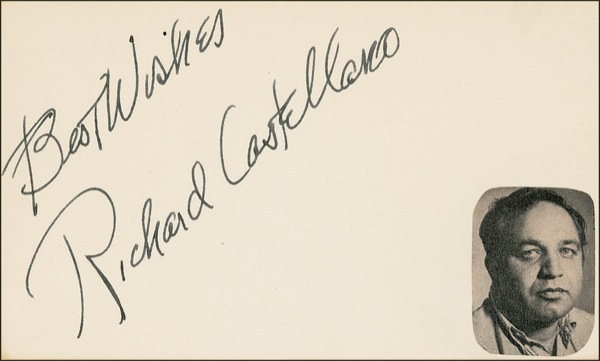 Best Wishes
Richard Castellano